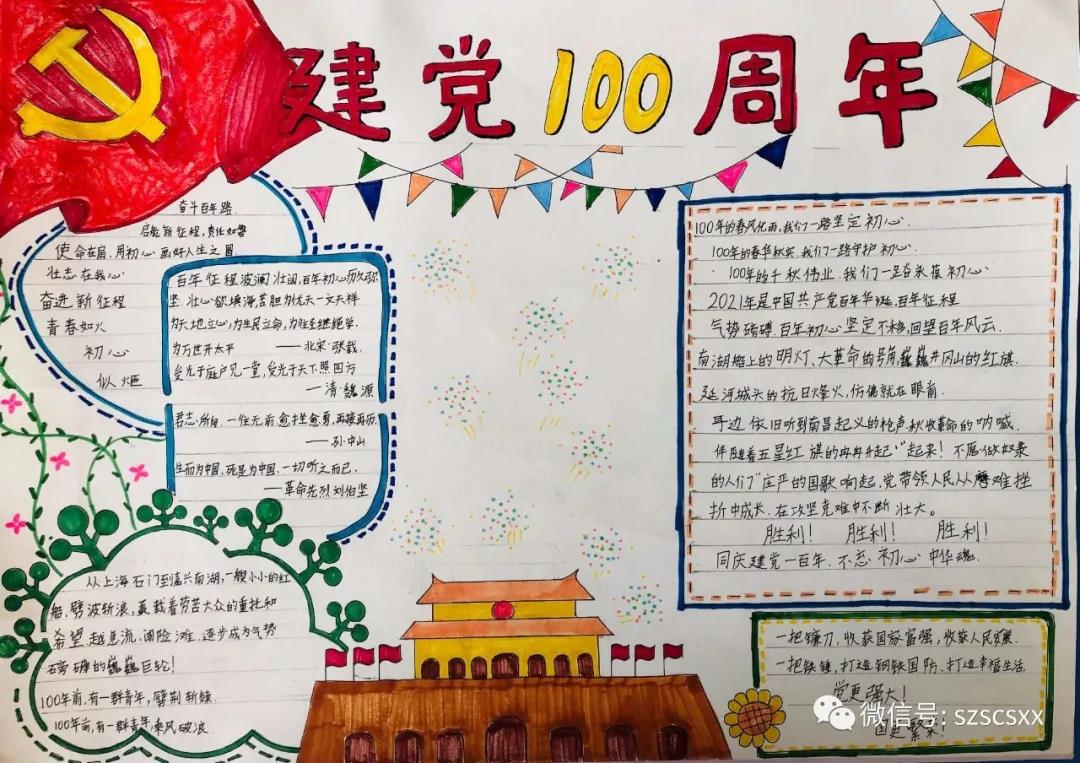 建党100周年
奋斗百年路
启航新征程,责任如磐
使命在肩,用初心画好人生之圆
壮志在我心
奋进新征程
青春如火
初心
似炬
百年征程波澜壮阔,百年初心历久弥
坚,壮心欲填海,苦胆为忧天—文天祥
为天地立心,为生民立命,为往圣继绝学,
为万世开太平 ——北宋·张载.
发光于庭户见一堂,发光于天下照四方
—清·魏源
君志所向,一往无前,愈挫愈勇,再接再历.
——孙中山
生而为中国,死是为中国,一切听之而已.
—革命先烈刘伯坚
从上海石门到嘉兴南湖,一艘小小的红
船,劈波斩浪,承载着劳苦大众的重托和
希望,越急流,闯险滩.逐步成为气势
磅礴的巍巍巨轮!
100年前,有一群青年,劈荆斩棘
100年前,有一群青年,乘风破浪.
100年的春风化雨,我们一路坚定初心.
100年的春华秋实,我们一路守护初心.
100年的千秋伟业,我们一足奋来葆初心.
2021年是中国共产党百年华诞,百年征程
气势磅礴,百年初心坚定不移,回望百年风云.
南湖船上的明灯,大革命的号角,巍巍井冈山的红旗.
延河城头的抗日烽火,仿佛就在眼前.
耳边依旧听到南昌起义的枪声,秋收革命的呐喊.
伴随着五星红旗的冉冉升起,“起来!不愿做奴隶
的人们”庄严的国歌响起,党带领人民从磨难挫
折中成长,在攻坚克难中不断壮大。
胜利! 胜利! 胜利!
同庆建党一百年,不忘初心中华魂.
一把镰刀,收获国家富强,收获人民安康.
一把铁锤,打造钢铁国防,打造幸福生活.
党更强大!
国更繁荣!
微信号: szscsxx